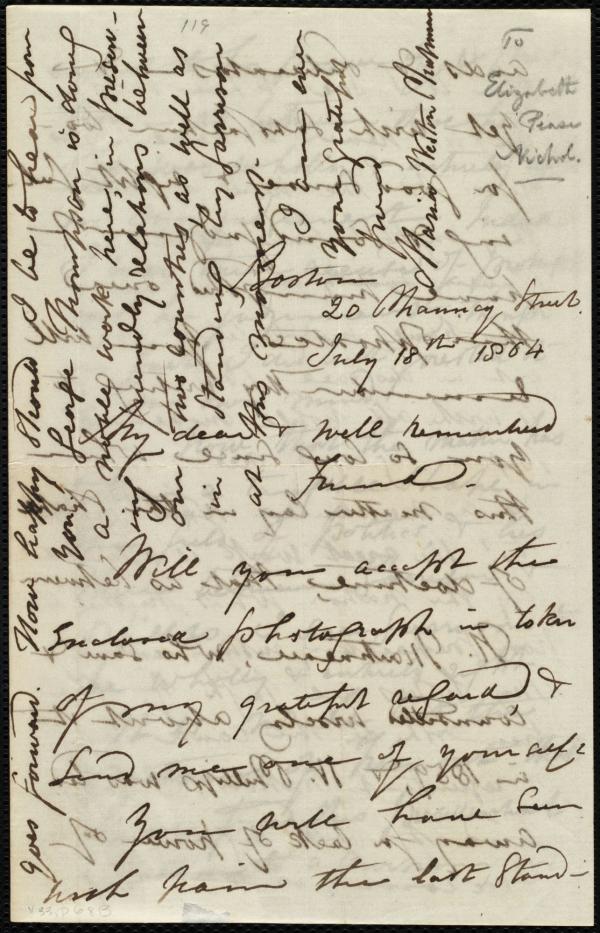 119
To
Elizabeth
Pease
Nichol.
Boston
20 Chauncy Street.
July 18th 1864
My dear & well remembered
Friend.
Will you accept the
enclosed photograph in token
of my grateful regard, &
send me one of yourself?
You will have seen
with pain the last stand-
goes forward. How happy should I be to hear from
you. George Thompson is doing
a noble work here, in preserv-
ing friendly relations between
our two countries as well as
in standing by Garrison
at this moment.
I am ever
your grateful
friend
Maria Weston Chapman